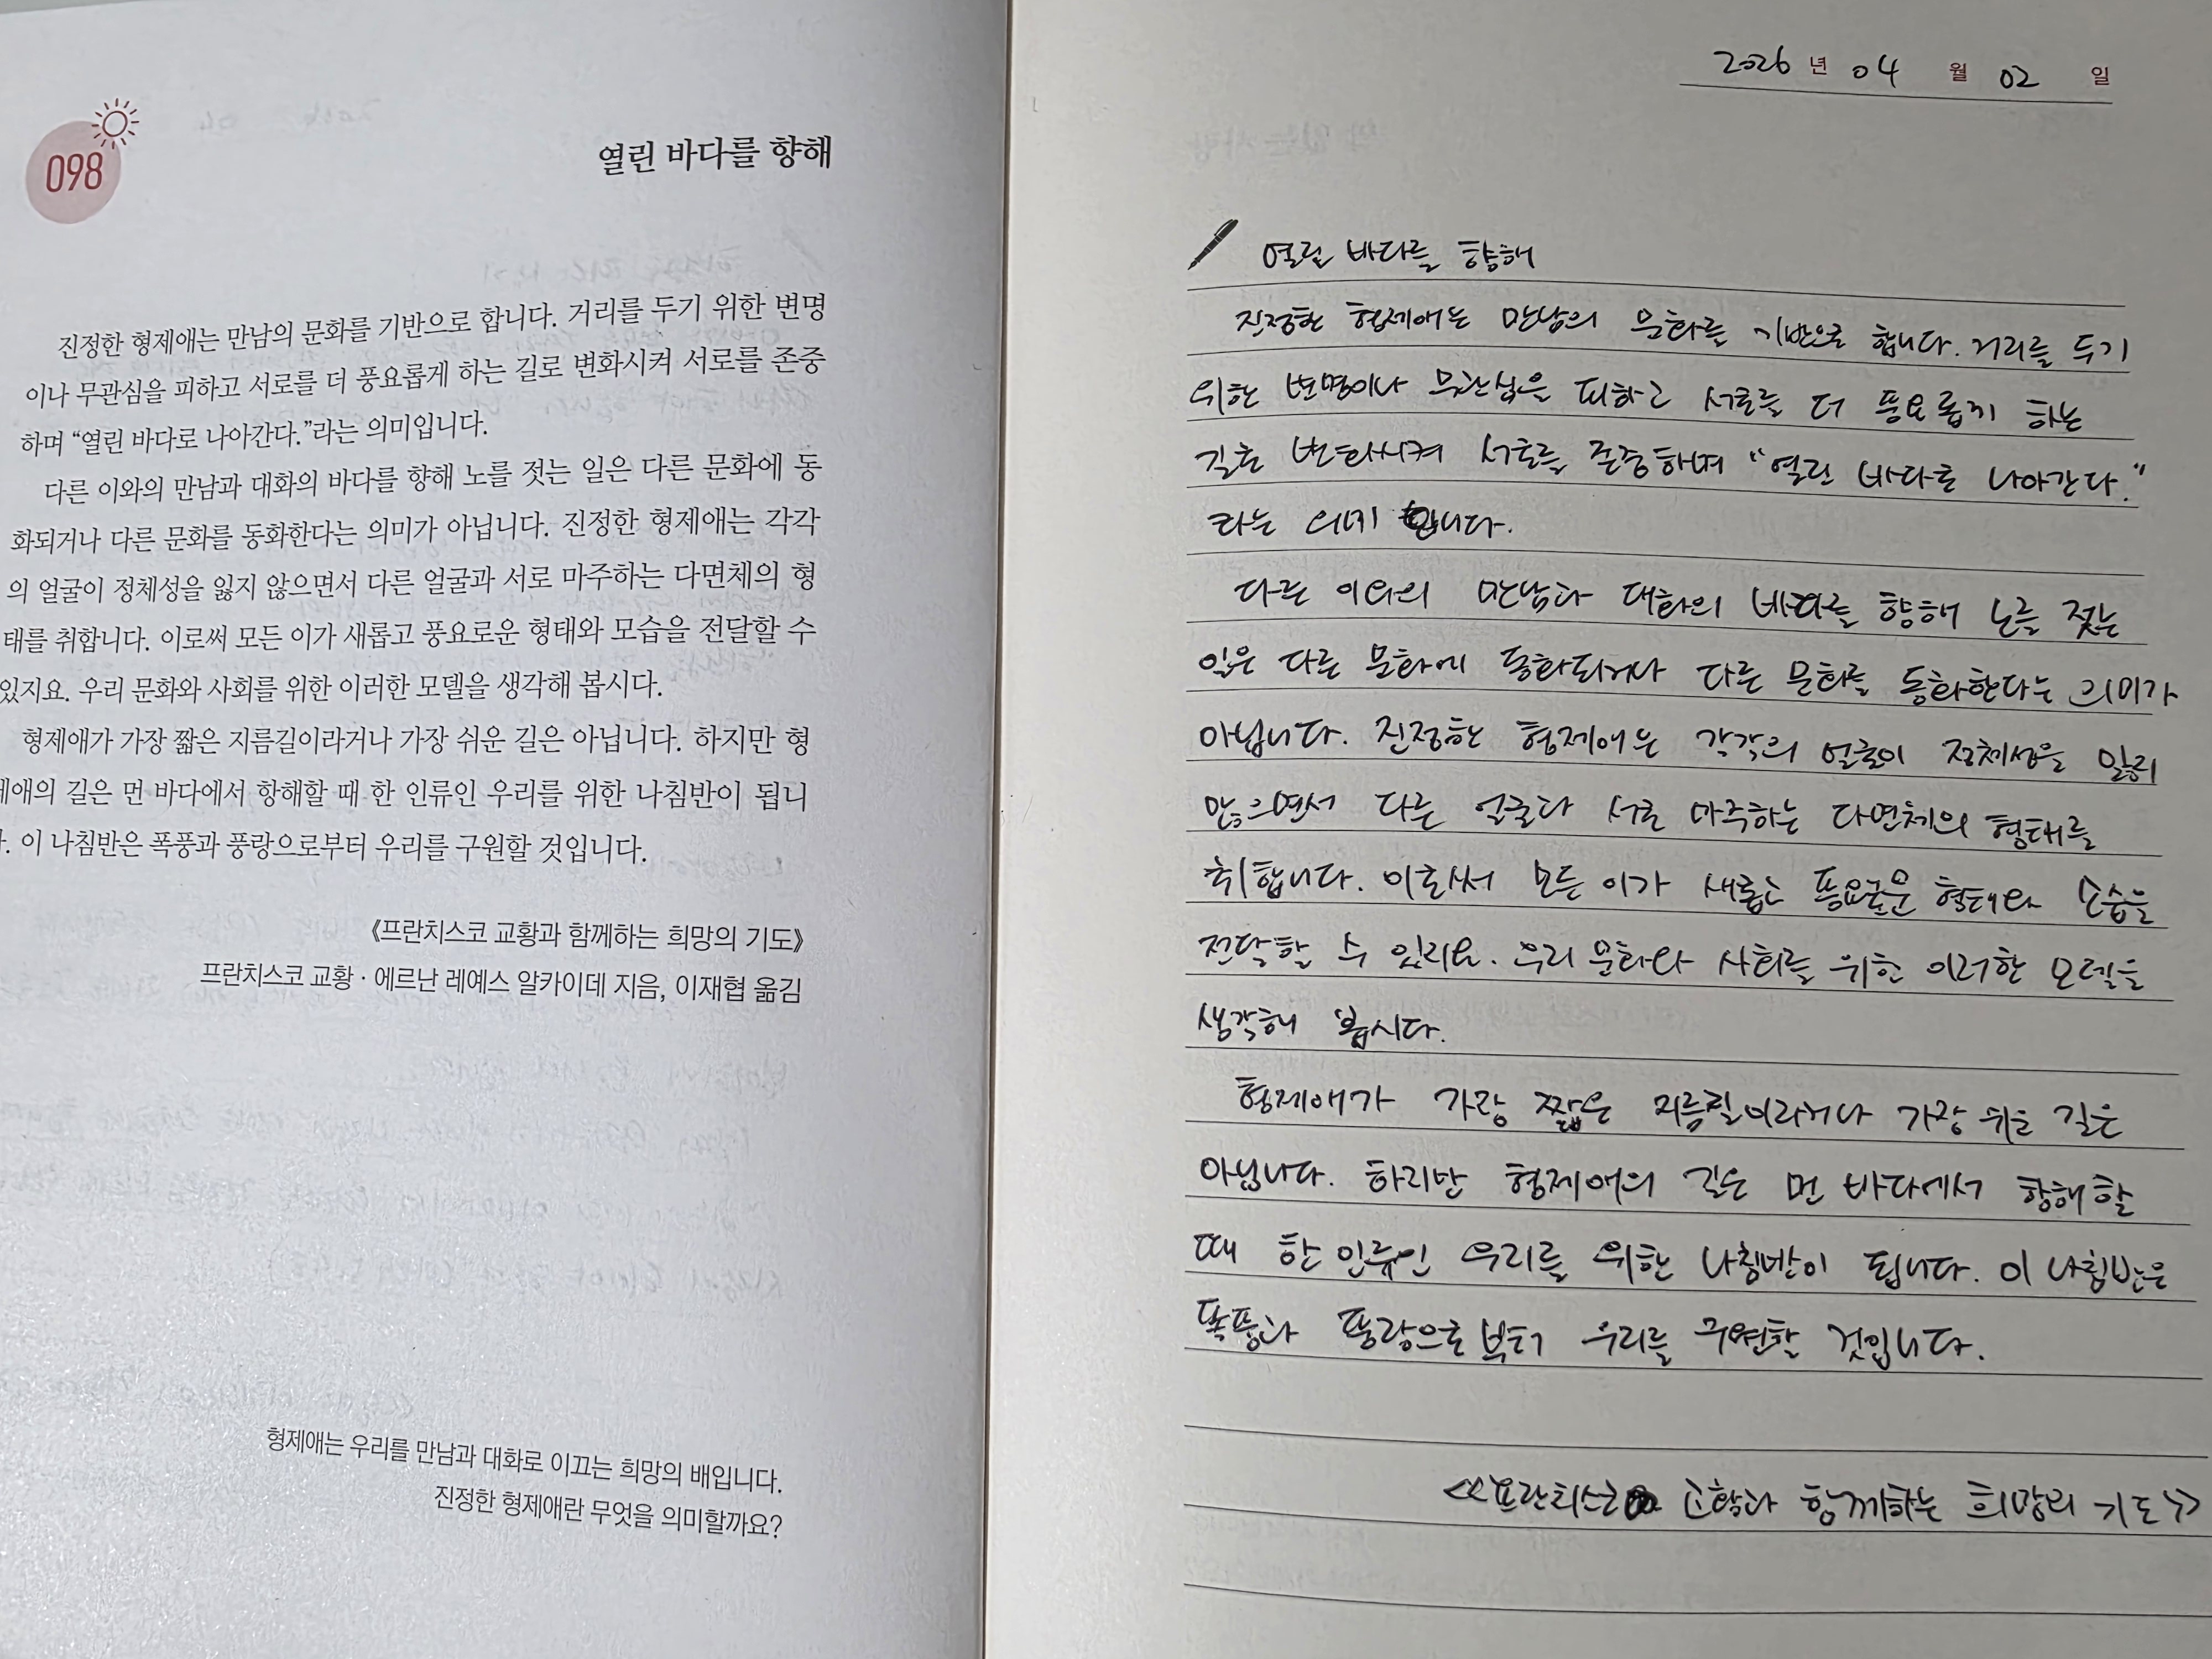 098
열린 바다를 향해
진정한 형제애는 만남의 문화를 기반으로 합니다. 거리를 두기 위한 변명
이나 무관심을 피하고 서로를 더 풍요롭게 하는 길로 변화시켜 서로를 존중
하며 “열린 바다로 나아간다.”라는 의미입니다.
다른 이와의 만남과 대화의 바다를 향해 노를 젓는 일은 다른 문화에 동
화되거나 다른 문화를 동화한다는 의미가 아닙니다. 진정한 형제애는 각각
의 얼굴이 정체성을 잃지 않으면서 다른 얼굴과 서로 마주하는 다면체의 형
태를 취합니다. 이로써 모든 이가 새롭고 풍요로운 형태와 모습을 전달할 수
있지요. 우리 문화와 사회를 위한 이러한 모델을 생각해 봅시다.
형제애가 가장 짧은 지름길이라거나 가장 쉬운 길은 아닙니다. 하지만 형
제애의 길은 먼 바다에서 항해할 때 한 인류인 우리를 위한 나침반이 됩니
. 이 나침반은 폭풍과 풍랑으로부터 우리를 구원할 것입니다.
《프란치스코 교황과 함께하는 희망의 기도》
프란치스코 교황 · 에르난 레예스 알카이데 지음, 이재협 옮김
형제애는 우리를 만남과 대화로 이끄는 희망의 배입니다.
진정한 형제애란 무엇을 의미할까요?
2026 년 04 월 02 일
열린 바다를 향해
진정한 형제애는 만남의 문화를 기반으로 합니다. 거리를 두기
위한 변명이나 무관심을 피하고 서로를 더 풍요롭게 하는
길로 변화시켜 서로를 존중하며 “열린 바다로 나아간다.”
라는 의미 입니다.
다른 이와의 만남과 대화의 바다를 향해 노를 젓는
일은 다른 문화에 동화되거나 다른 문화를 동화한다는 의미가
아닙니다. 진정한 형제애는 각각의 얼굴이 정체성을 잃지
않으면서 다른 얼굴과 서로 마주하는 다면체의 형태를
취합니다. 이로써 모든 이가 새롭고 풍요로운 형태와 모습을
전달할 수 있지요. 우리 문화와 사회를 위한 이러한 모델을
생각해 봅시다.
형제애가 가장 짧은 지름길이라거나 가장 쉬운 길은
아닙니다. 하지만 형제애의 길은 먼 바다에서 항해할
때 한 인류인 우리를 위한 나침반이 됩니다. 이 나침반은
폭풍과 풍랑으로부터 우리를 구원할 것입니다.
<<프란치스코 교황과 함께하는 희망의 기도>>